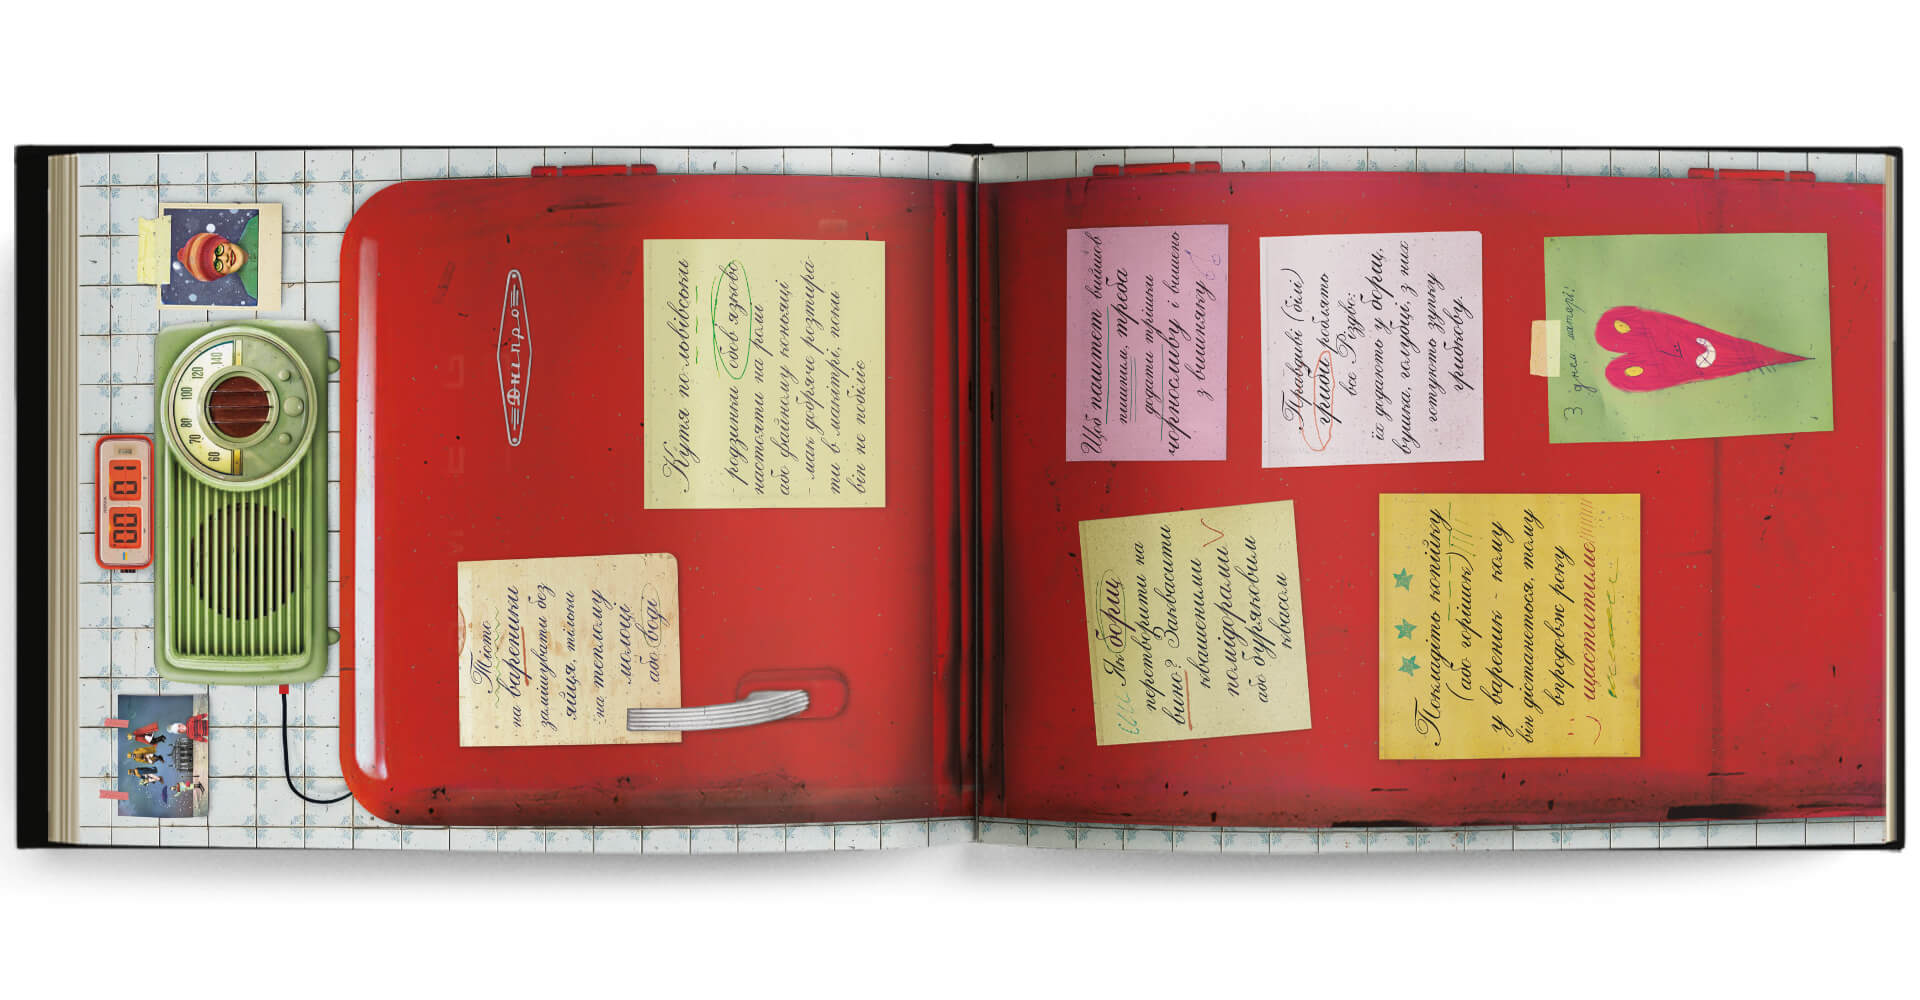 00 01
60 70 80 100 120 140
Дніпро
Тісто
на вареники
замішувати без
яйця, тільки
на теплому
молоці
або воді
Кутя по-львівськи
родзинки обов'язково
настояти на ромі
або файному коньяці
- мак добряче розтира-
ти в макітрі, поки
він не побіліє
Як борщ
перетворити на
вишо? Заквасити
квашеними
помідорами
або буряковим
квасом
Щоб паштет вийшов
пишним, треба
додати трішки
чорносливу і вишень
з вишняку
Покладіть копійку
(або горішок)!!!
у вареник - кому
він дістанеться, тому
впродовж року
щаститиме!!!!!!!
Правдиві (білі)
гриби роблять
все Різдво:
їх додають у борщ,
вушка, голубці, з них
готують зупку
грибкову.
З днем матері!